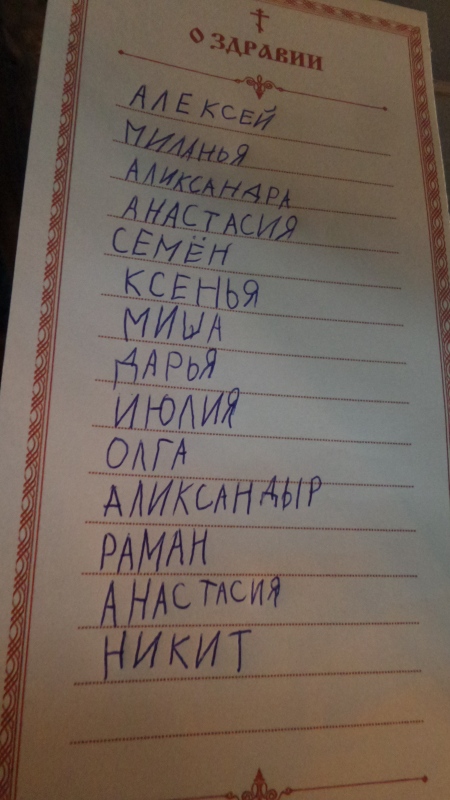 О ЗДРАВИИ
АЛЕКСЕЙ
МИЛАНЬЯ
АЛИКСАНДРА
АНАСТАСИЯ
СЕМЁН
КСЕНЬЯ
МИША
ДАРЬЯ
ИЮЛИЯ
ОЛГА
АЛИКСАНДЫР
РАМАН
АНАСТАСИЯ
НИКИТ